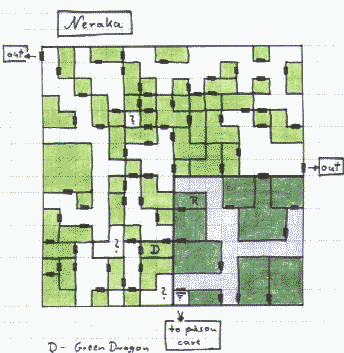 Neraka
out
?
out
R
?
D
?
to prison
cave
D - Green Dragon